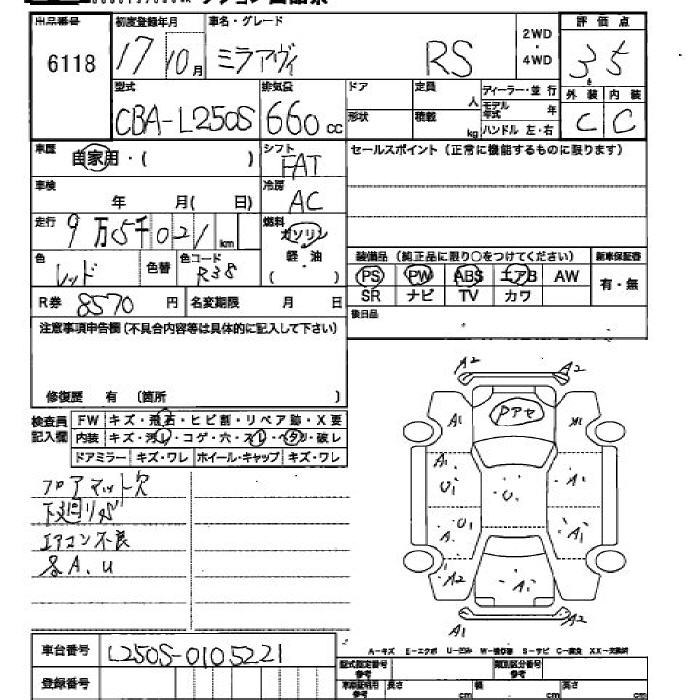 出品番号 初度登録年月 車名・グレード 2WD ・ 4WD 評価点
6118 17 10月 ミラアヴィ RS 3.5
型式 排気量 ドア 定員 人 ディーラー・並行 外装 内装
CBA-L250S 660cc 形状 積載 kg モデル年式 年 ハンドル 左・右 C C
車歴 自家用・( ) シフト FAT セールスポイント (正常に機能するものに限ります)
車検 年 月( 日) 冷房 AC
走行 9万5千021km 燃料 ガソリン
軽・油
( )
色 レッド 色替 色コード R38
装備品 (純正品に限り○をつけてください) 新車保証書
PS PW ABS エアB AW 有・無
SR ナビ TV カワ
R券 8570円 名変期限 月 日 後日品
注意事項申告欄(不具合内容等は具体的に記入して下さい)
修復歴 有 (箇所 )
検査員記入欄 FW キズ・飛石・ヒビ割・リペア跡・X要
内装 キズ・汚レ・コゲ・穴・スレ・ヘタリ・破レ
ドアミラー キズ・ワレ ホイール・キャップ キズ・ワレ
フロアマット欠
下廻りサビ
エアコン不良
各A.U
A2 A2
Pアセ
A1 A1
A1 U1 U A1
U1 A A1
A2 A1
A1 A2
A-キズ E-エクボ U-凹み W-補修跡 S-サビ C-腐食 XX-交換済
車台番号 L250S-0105221
登録番号
型式指定番号 参考 類別区分番号 参考
車庫証明用 参考 長さ cm 幅 cm 高さ cm